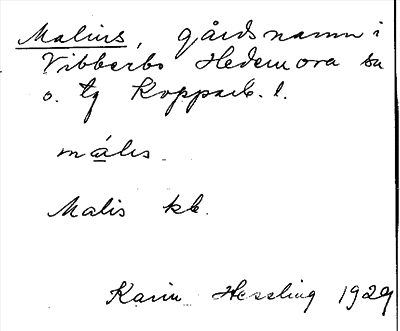 Malius, gårdsnamn i
Vibberbo Hedemora sn
o. tg Kopparb. l.
mális.
Malis kb.
Karin Hessling 1929